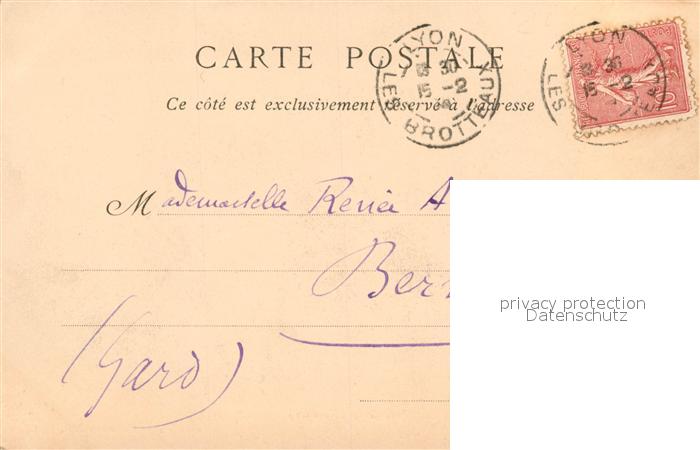 CARTE POSTALE
Ce côté est exclusivement réservé à l'adresse
LYON
LES BROTTEAUX
15 -2
LYON
LES
15 -2
Mademoiselle Renée A
Ber
(Gard)
privacy protection
Datenschutz